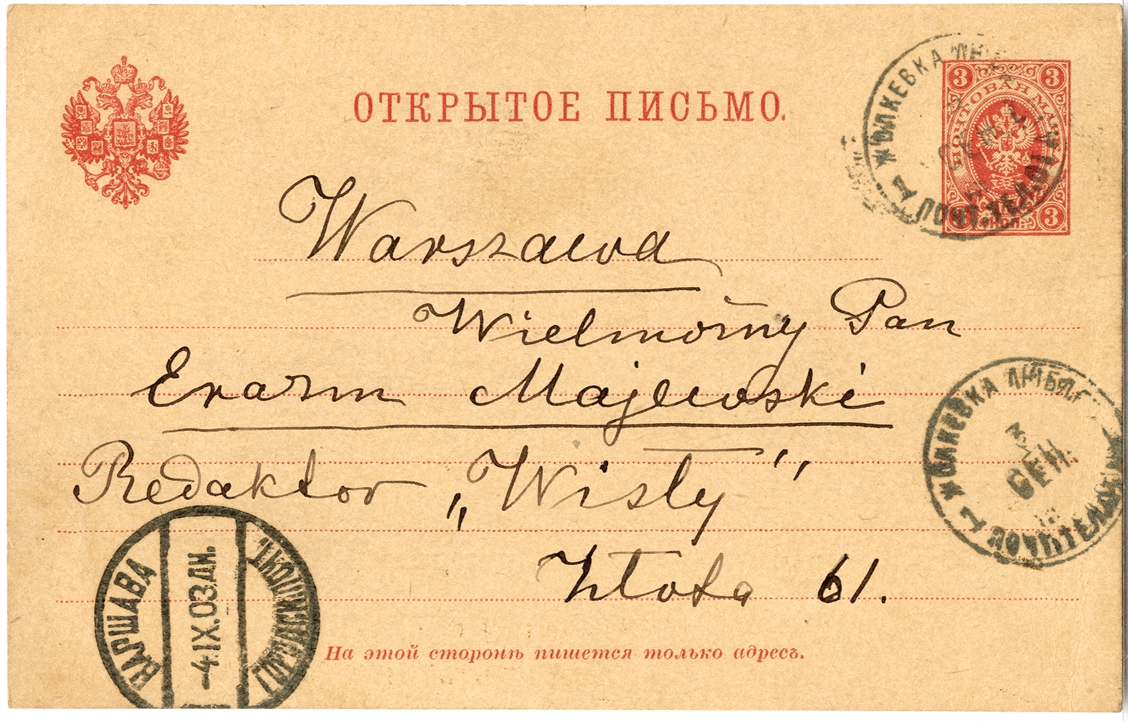 ОТКРЫТОЕ ПИСЬМО.
3 3
ПОЧТОВАЯ МАРКА
3 КОП. 3
ЖОЛКЕВКА ЛЮБЛ.
ПОЧТ. ТЕЛ. ОТД.
Warszawa
Wielmożny Pan
Erazm Majewski
Redaktor „Wisły"
Złota 61.
ЖОЛКЕВКА ЛЮБЛ.
3
СЕН.
ПОЧТ. ТЕЛ. ОТД.
ВАРШАВА
-4.IX.03.ДН.
На этой сторонѣ пишется только адресъ.